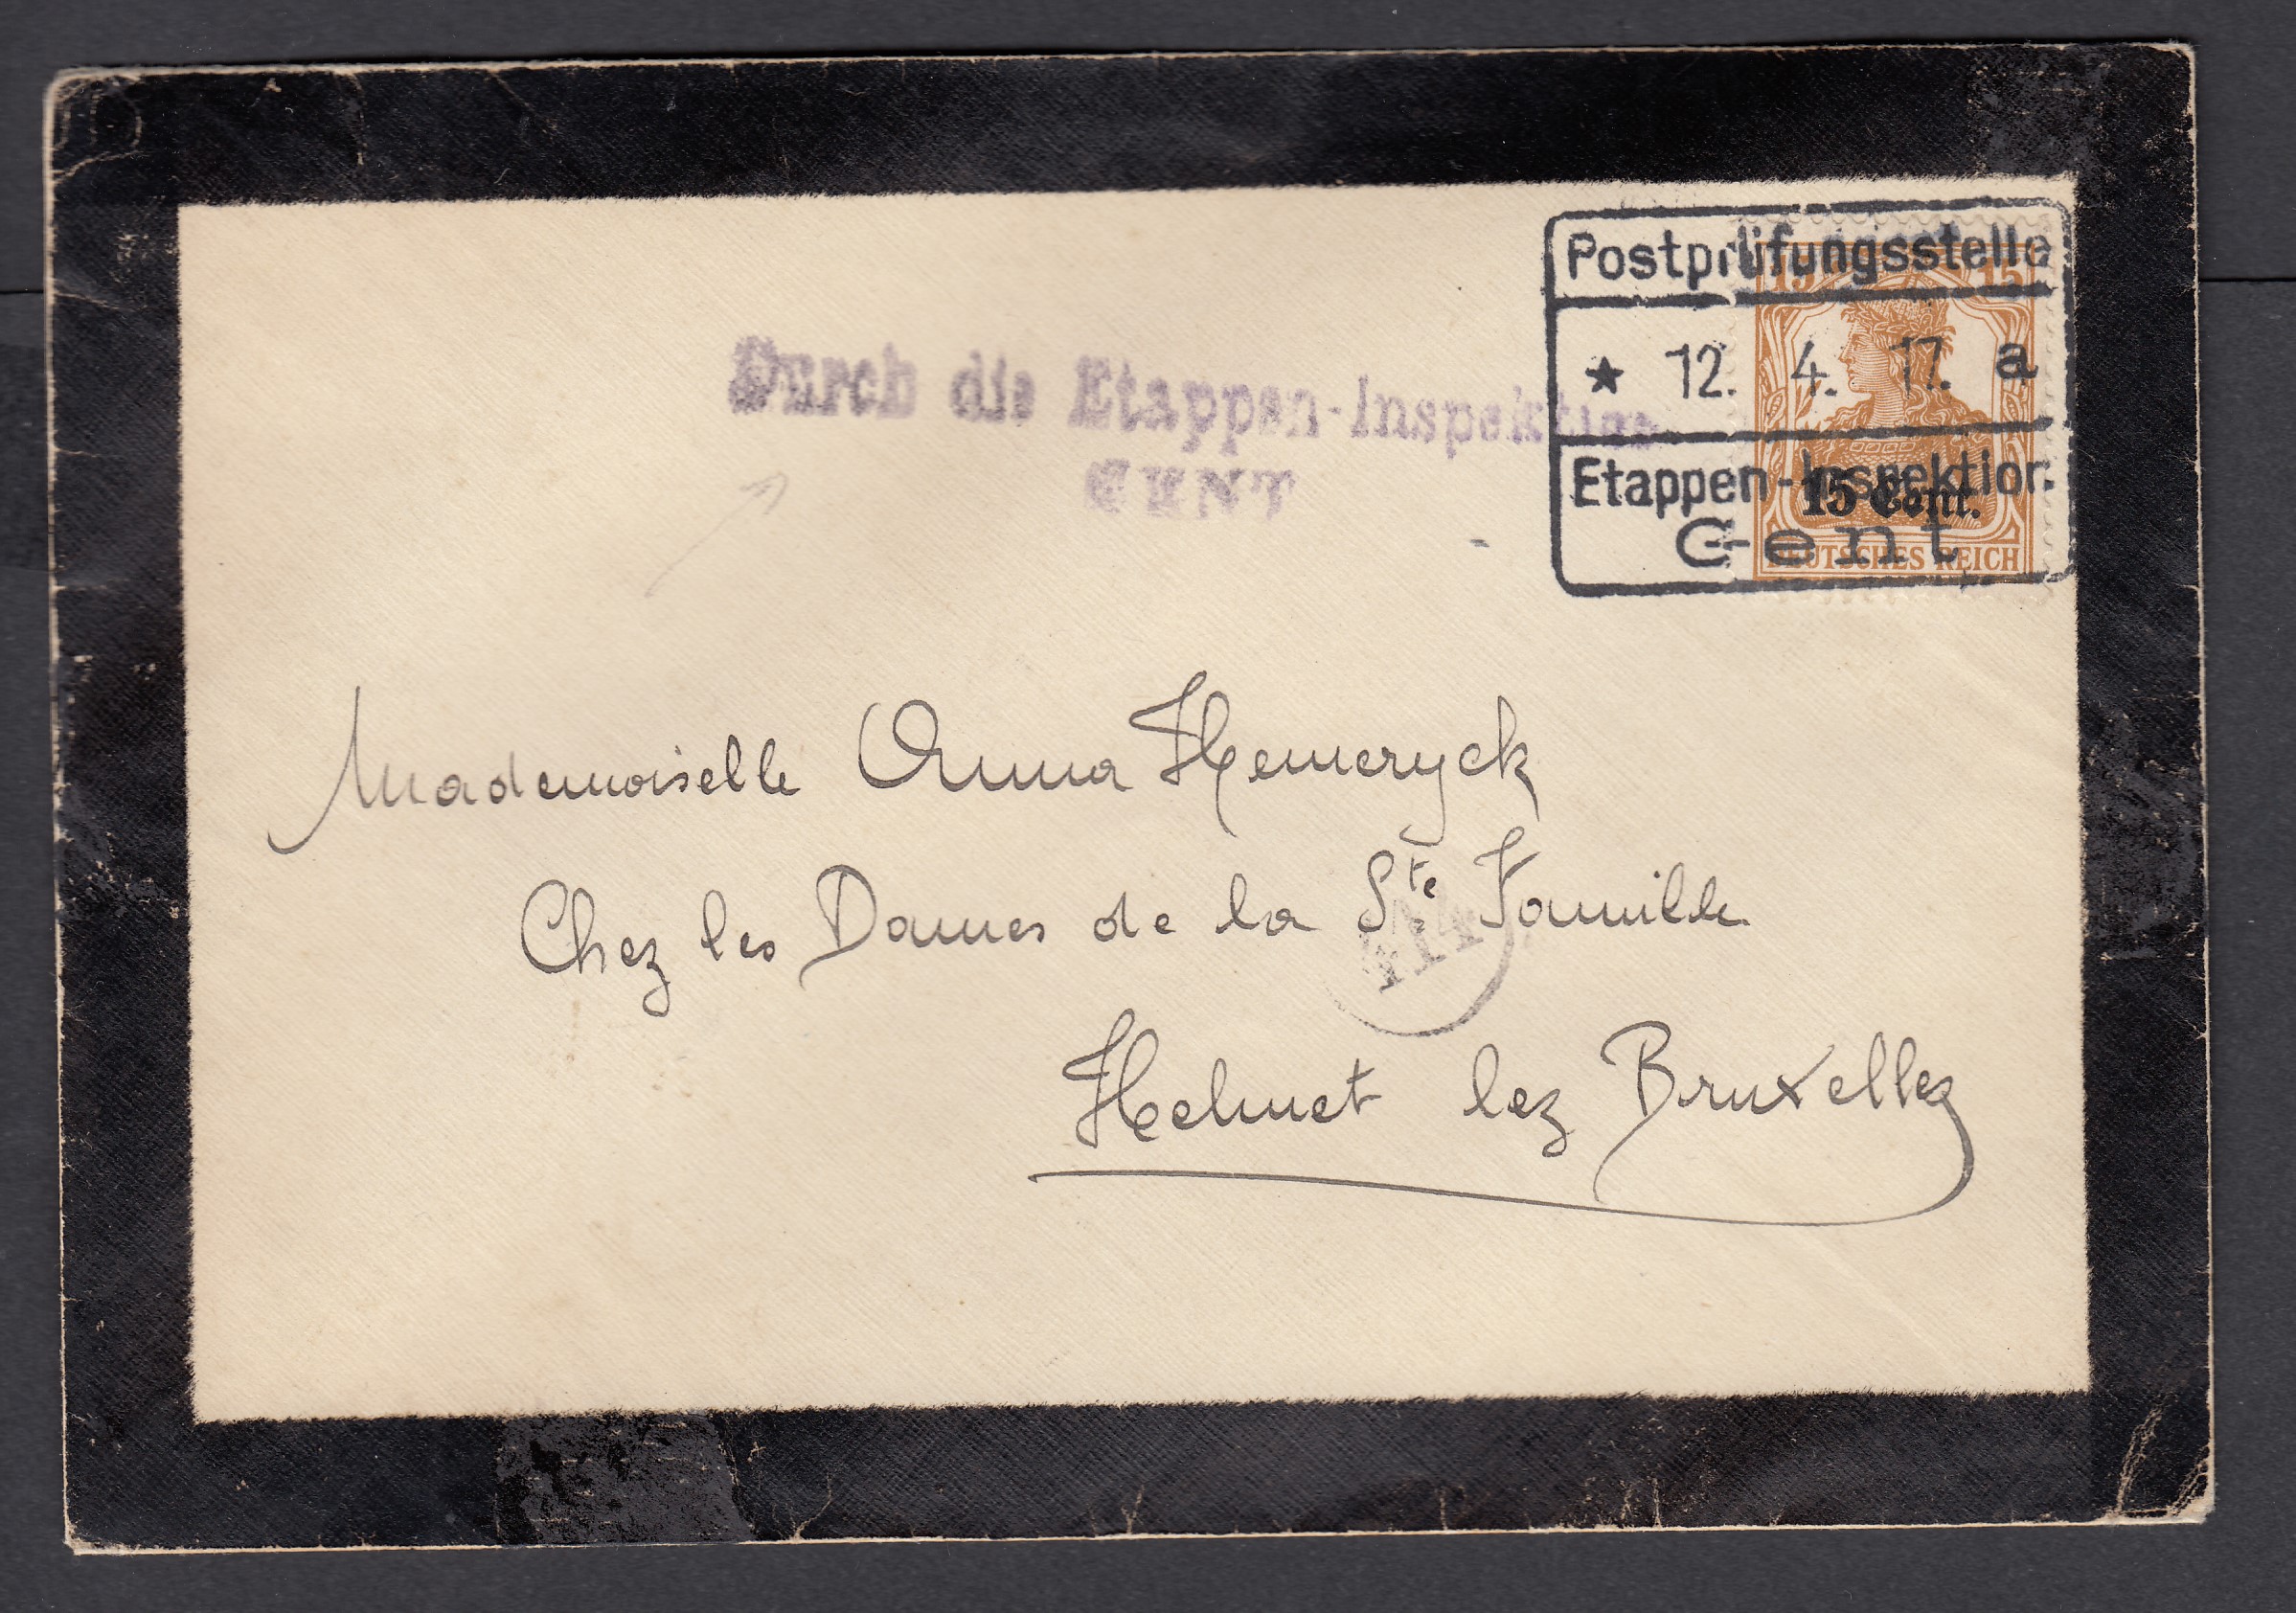 Postprüfungsstelle
15 15
★ 12. 4. 17. a
Etappen-Inspektion
15 Cent.
Gent
DEUTSCHES REICH
Durch die Etappen-Inspektion
GENT
Mademoiselle Anna Hemeryck
Chez les Dames de la Ste Famille
Helmet lez Bruxelles